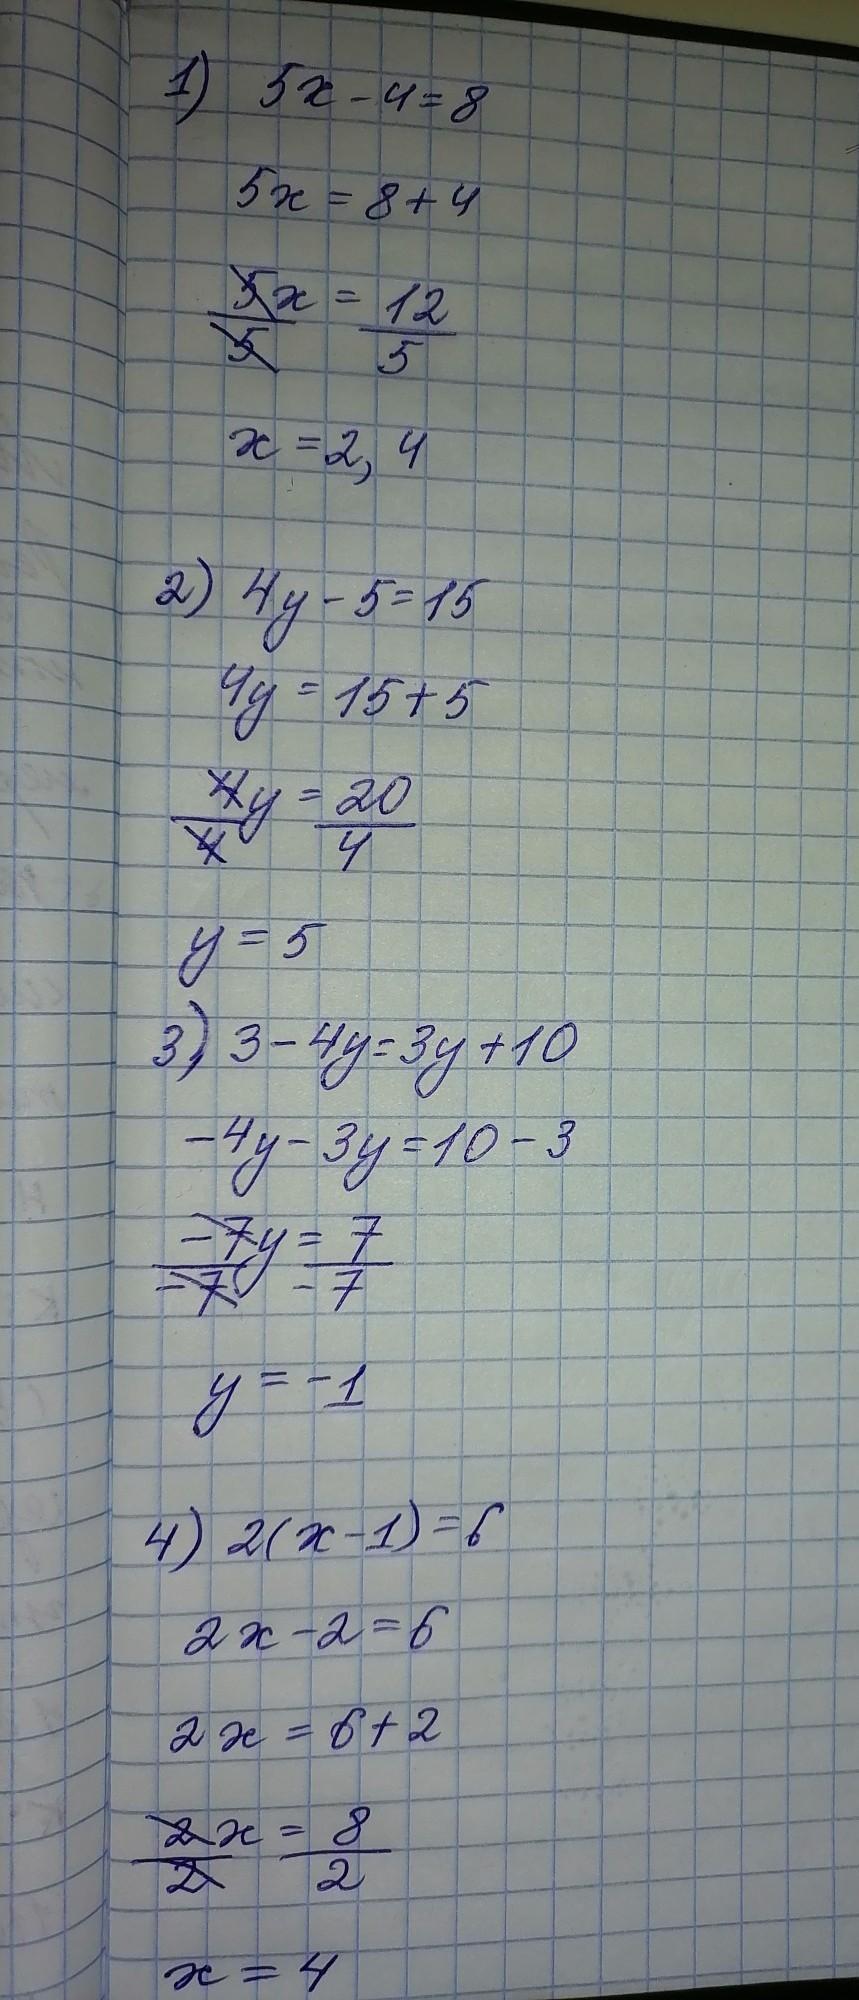 1) 5x - 4 = 8
5x = 8 + 4
5x/5 = 12/5
x = 2,4
2) 4y - 5 = 15
4y = 15 + 5
4y/4 = 20/4
y = 5
3) 3 - 4y = 3y + 10
-4y - 3y = 10 - 3
-7y/-7 = 7/-7
y = -1
4) 2(x - 1) = 6
2x - 2 = 6
2x = 6 + 2
2x/2 = 8/2
x = 4